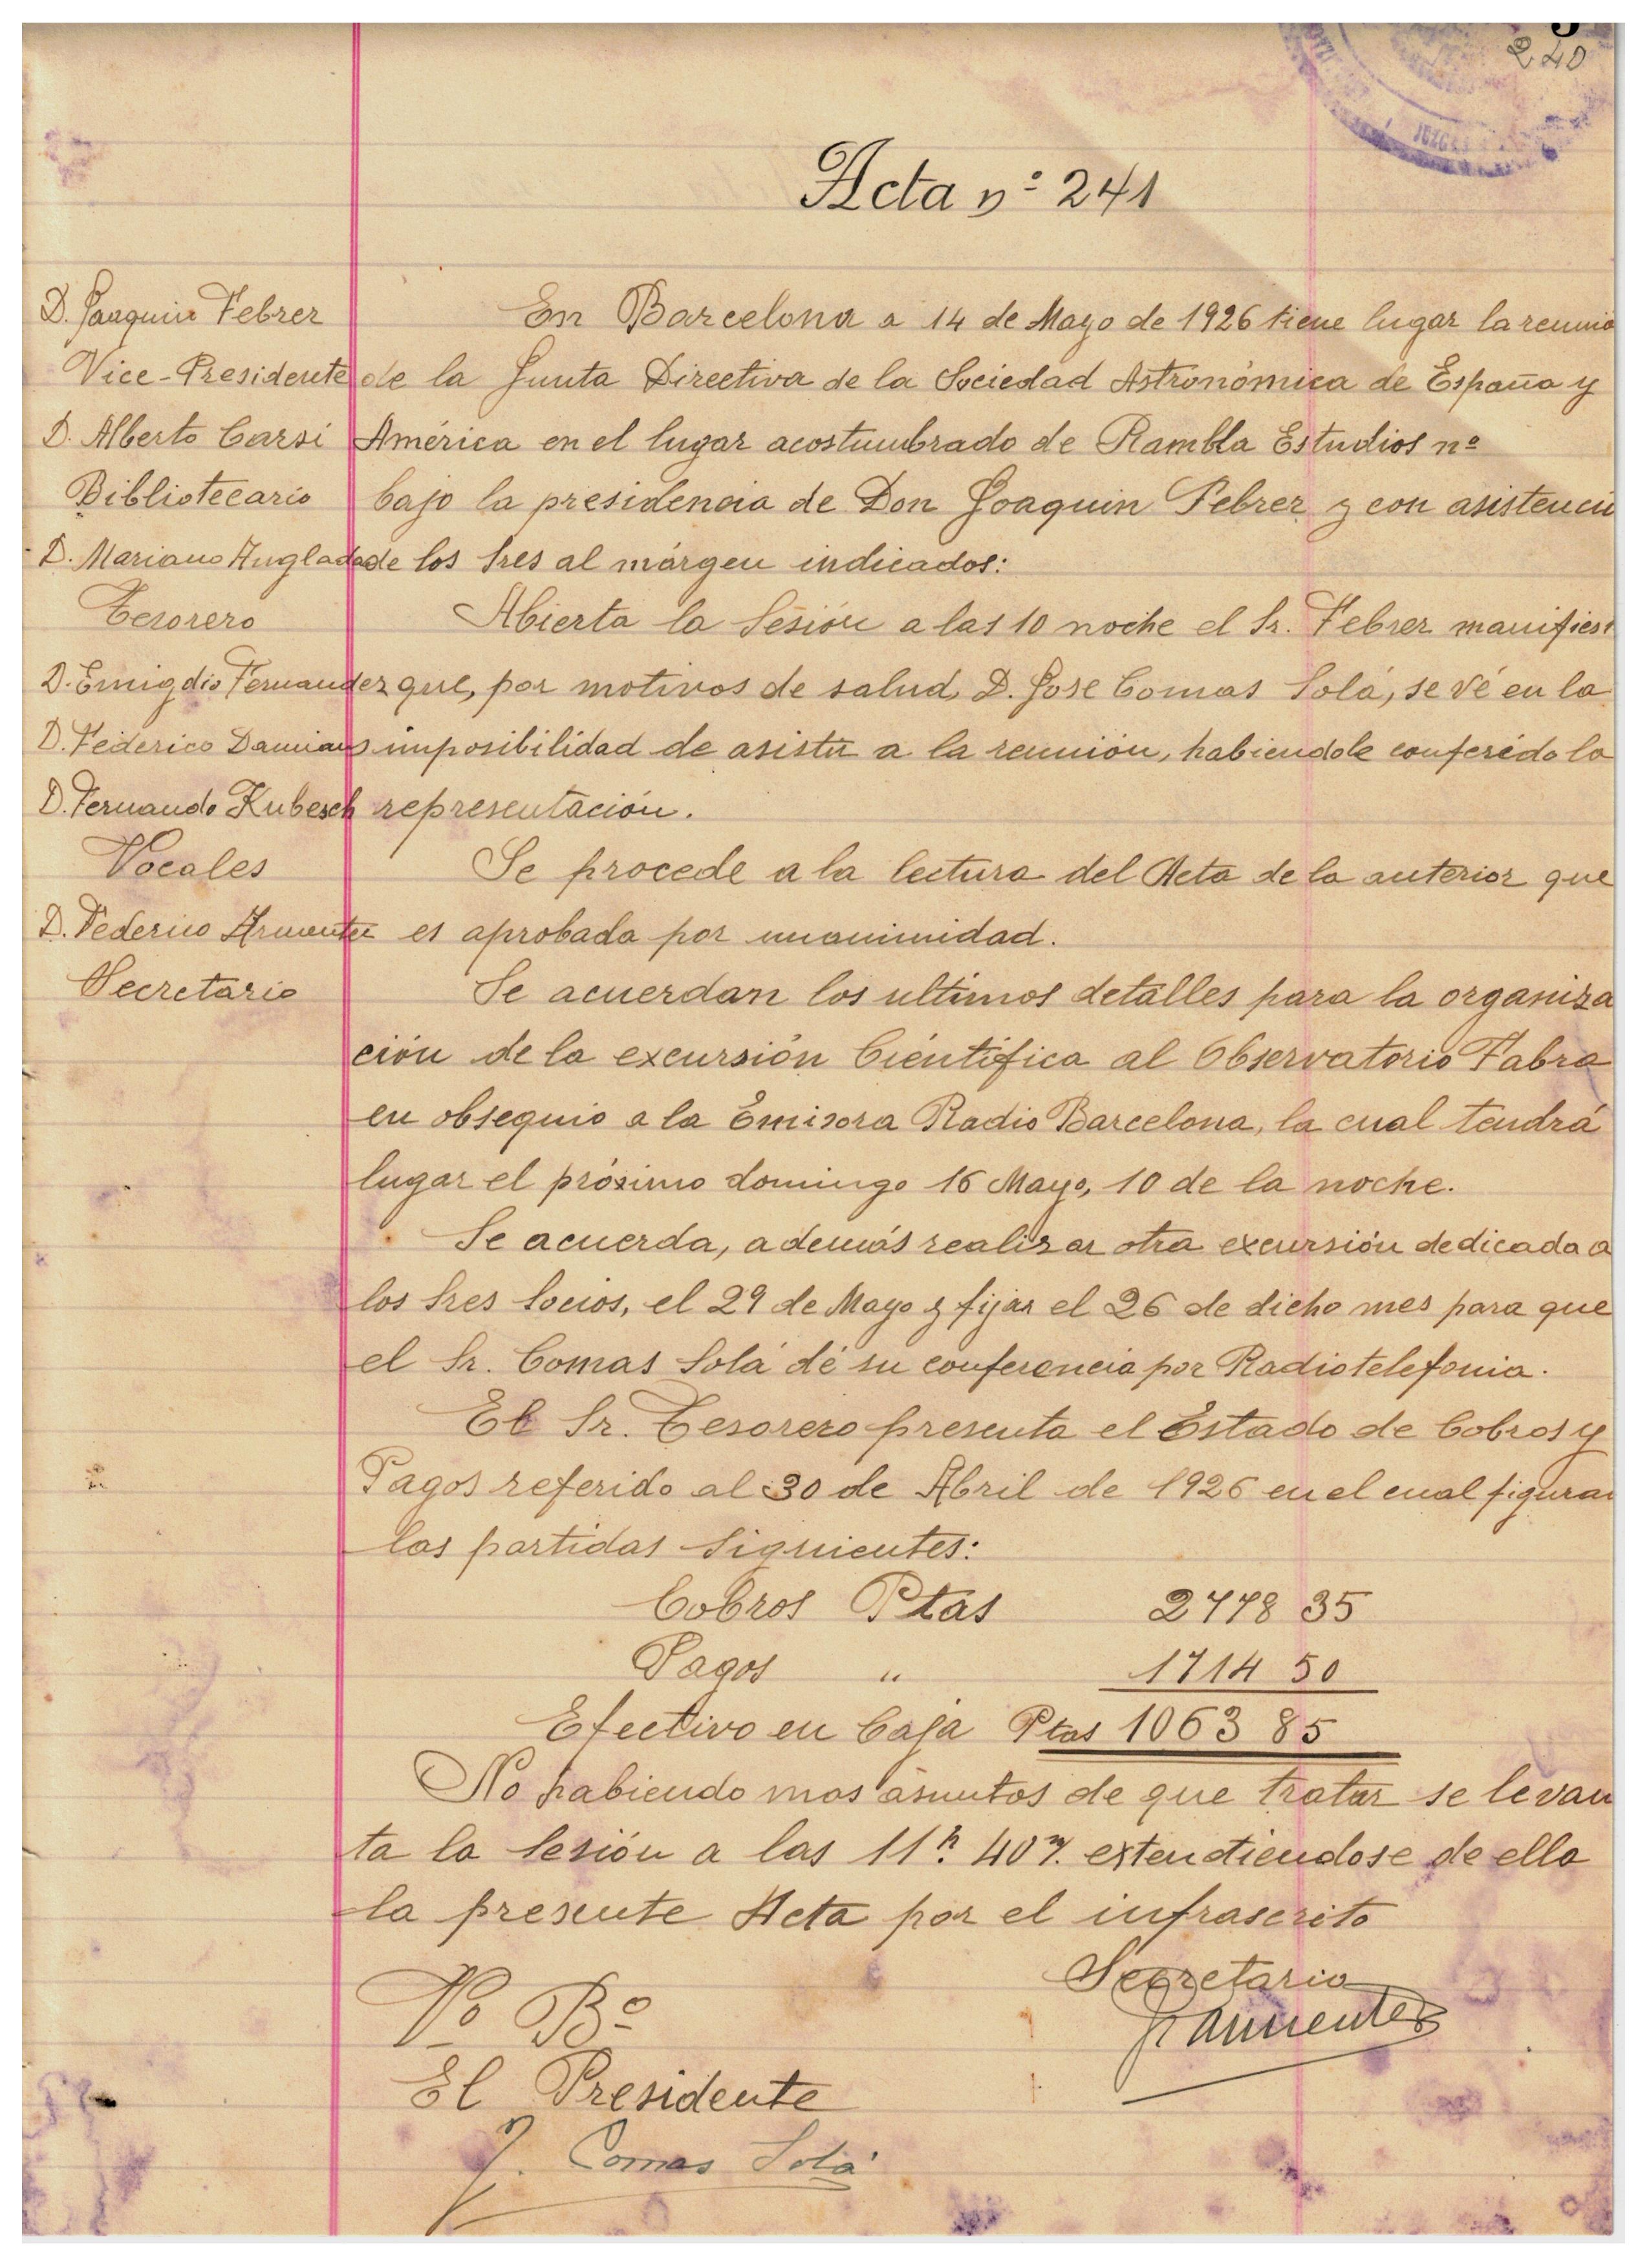 240
Acta nº 241
D. Joaquin Febrer
Vice-Presidente
D. Alberto Carsi
Bibliotecario
D. Mariano Anglada
Tesorero
D. Emigdio Fernandez
D. Federico Damians
D. Fernando Kubesch
Vocales
D. Federico Armenter
Secretario
En Barcelona a 14 de Mayo de 1926 tiene lugar la reunio
de la Junta Directiva de la Sociedad Astronómica de España y
América en el lugar acostumbrado de Rambla Estudios nº
bajo la presidencia de Don Joaquin Febrer y con asistenci
de los Sres al márgen indicados:
Abierta la Sesión a las 10 noche el Sr. Febrer manifies
que, por motivos de salud, D. Jose Comas Solá, se vé en la
imposibilidad de asistir a la reunión, habiendole conferido la
representación.
Se procede a la lectura del Acta de la anterior que
es aprobada por unanimidad.
Se acuerdan los ultimos detalles para la organiza
ción de la excursión Científica al Observatorio Fabra
en obsequio a la Emisora Radio Barcelona, la cual tendrá
lugar el próximo domingo 16 Mayo, 10 de la noche.
Se acuerda, además realizar otra excursión dedicada a
los Sres Socios, el 29 de Mayo y fijar el 26 de dicho mes para que
el Sr. Comas Solá dé su conferencia por Radiotelefonia.
El Sr. Tesorero presenta el Estado de Cobros y
Pagos referido al 30 de Abril de 1926 en el cual figuran
las partidas siguientes:
Cobros Ptas 2778 35
Pagos " 1714 50
Efectivo en Caja Ptas 1063 85
No habiendo mas asuntos de que tratar se levan
ta la Sesión a las 11h. 40m. extendiendose de ella
la presente Acta por el infrascrito
Secretario
F. Armenter
Vº Bº
El Presidente
J. Comas Solá